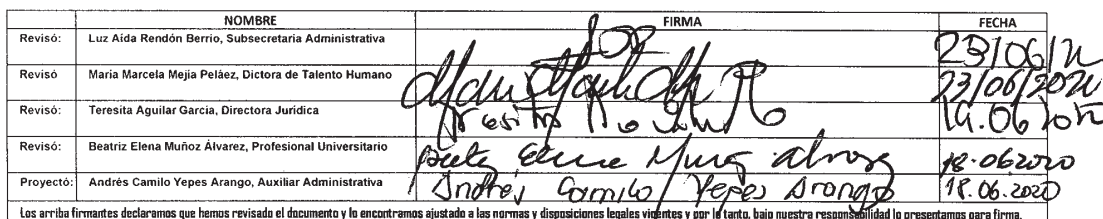 NOMBRE FIRMA FECHA
Revisó: Luz Aída Rendón Berrio, Subsecretaria Administrativa 23/06/
Revisó María Marcela Mejía Peláez, Dictora de Talento Humano 23/06/2020
Revisó: Teresita Aguilar García, Directora Jurídica 19.06
Revisó: Beatriz Elena Muñoz Álvarez, Profesional Universitario Elena 18.062020
Proyectó: Andrés Camilo Yepes Arango, Auxiliar Administrativa Andrés Camilo Yepes Arango 18.06.2020
Los arriba firmantes declaramos que hemos revisado el documento y lo encontramos ajustado a las normas y disposiciones legales vigentes y por lo tanto, bajo nuestra responsabilidad lo presentamos para firma.